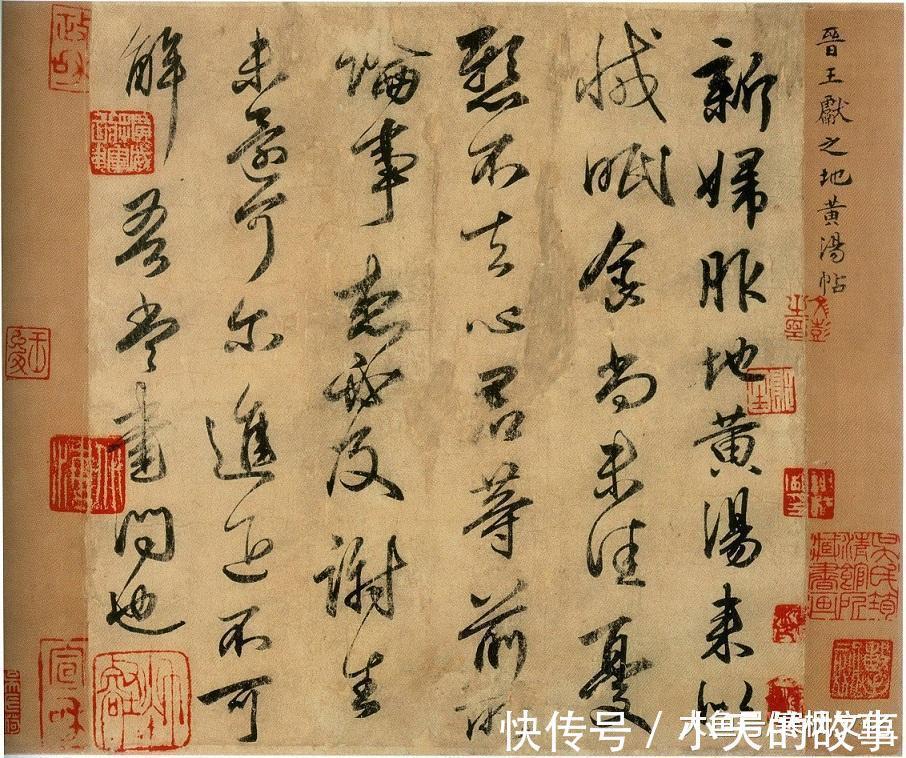 晉王獻之地黄湯帖
新婦服地黄湯来似
減眠食尚未佳憂
懸不去心君等前所
論事想謝生
未還可尔進退不可
解吾當書問也
政和
宣和
快传号 /
的故事